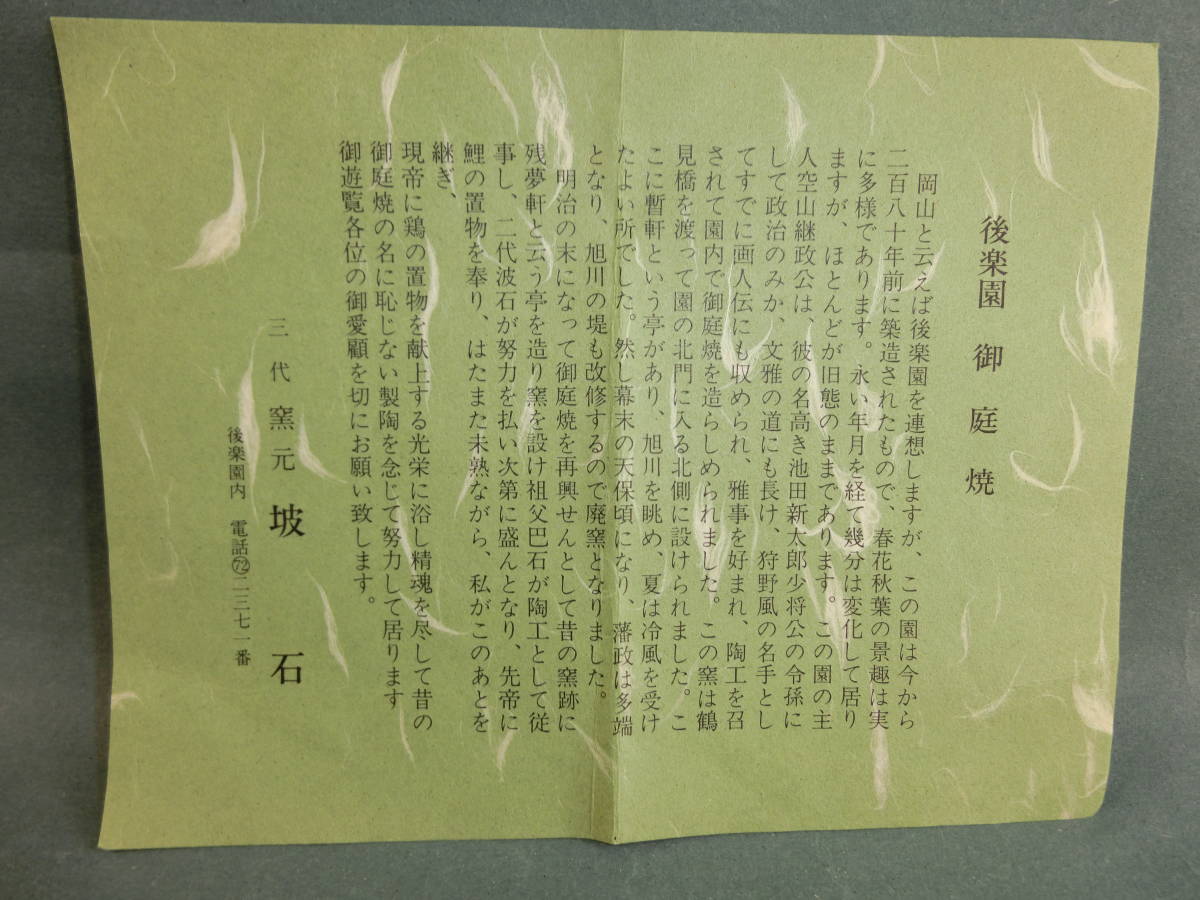 後楽園御庭焼
岡山と云えば後楽園を連想しますが、この園は今から
二百八十年前に築造されたもので、春花秋葉の景趣は実
に多様であります。永い年月を経て幾分は変化して居り
ますが、ほとんどが旧態のままであります。この園の主
人空山継政公は、彼の名高き池田新太郎少将公の令孫に
して政治のみか、文雅の道にも長け、狩野風の名手とし
てすでに画人伝にも収められ、雅事を好まれ、陶工を召
されて園内で御庭焼を造らしめられました。この窯は鶴
見橋を渡って園の北門に入る北側に設けられました。こ
こに暫軒という亭があり、旭川を眺め、夏は冷風を受け
たよい所でした。然し幕末の天保頃になり、藩政は多端
となり、旭川の堤も改修するので廃窯となりました。
明治の末になって御庭焼を再興せんとして昔の窯跡に
残夢軒と云う亭を造り窯を設け祖父巴石が陶工として従
事し、二代波石が努力を払い次第に盛んとなり、先帝に
鯉の置物を奉り、はたまた未熟ながら、私がこのあとを
継ぎ、
現帝に鶏の置物を献上する光栄に浴し精魂を尽して昔の
御庭焼の名に恥じない製陶を念じて努力して居ります
御遊覧各位の御愛顧を切にお願い致します。
三代窯元 坡石
後楽園内 電話㉒二三七一番